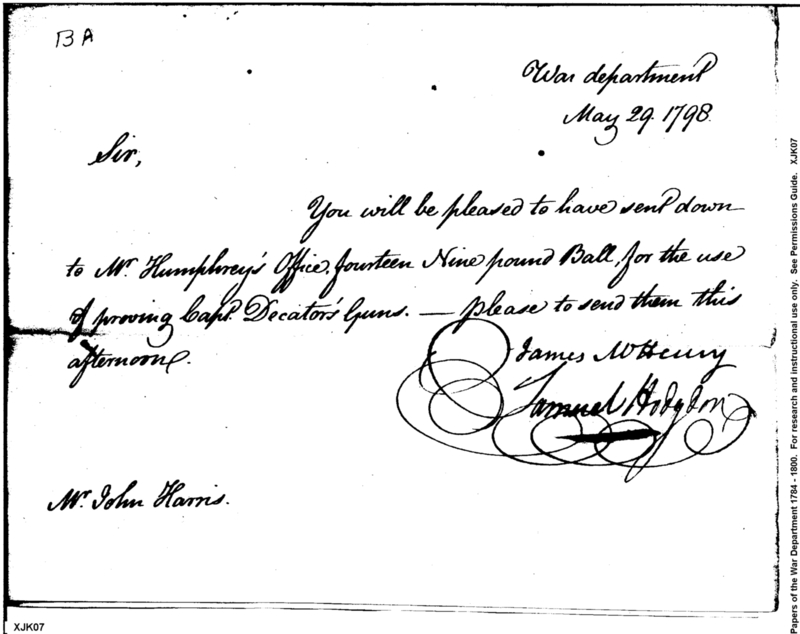 BA
War department
May 29. 1798.
Sir,
You will be pleased to have sent down
to Mr. Humphrey's Office, fourteen Nine pound Ball, for the use
of proving Capt. Decator's Guns. — please to send them this
afternoon.
James McHenry
Samuel Hodgdon
Mr. John Harris.
XJK07
Papers of the War Department 1784 - 1800. For research and instructional use only. See Permissions Guide. XJK07